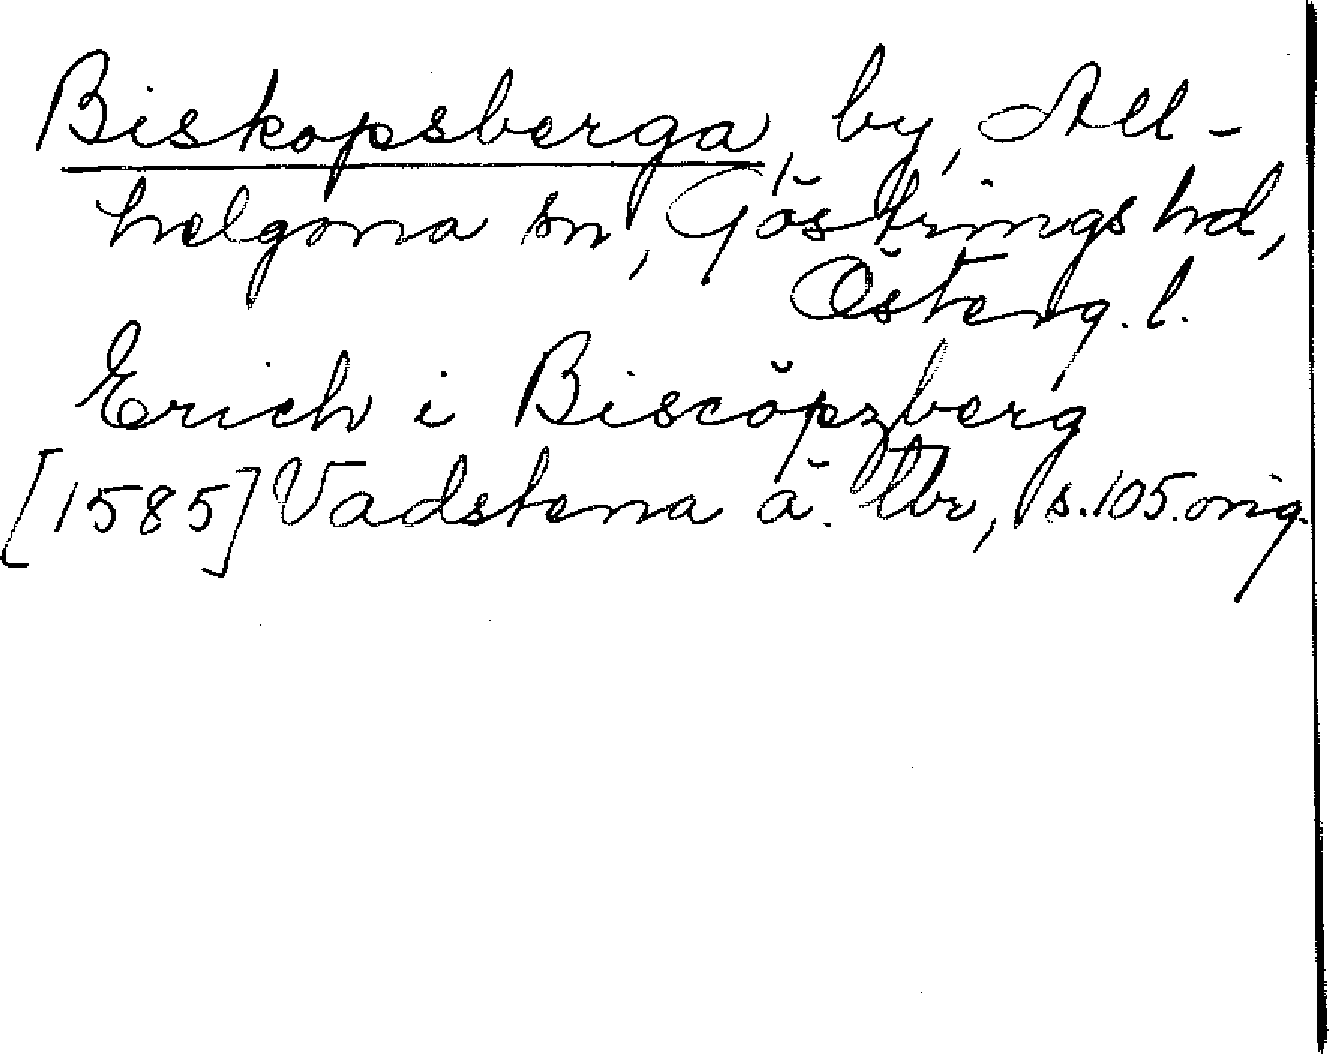 Biskopsberga, by, All-
helgona sn, Göstrings hd,
Österg.l.
Erich i Biscöpzberg
[1585] Vadstena ä. tbr, s.105.orig.